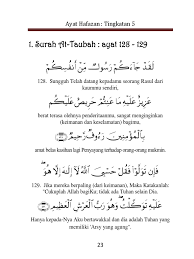 Ayat Hafazan : Tingkatan 5
1. Surah At-Taubah : ayat 128 - 129
لَقَدْ جَاءَكُمْ رَسُولٌ مِّنْ أَنفُسِكُمْ
128. Sungguh Telah datang kepadamu seorang Rasul dari
kaummu sendiri,
عَزِيزٌ عَلَيْهِ مَا عَنِتُّمْ حَرِيصٌ عَلَيْكُم
berat terasa olehnya penderitaanmu, sangat menginginkan
(keimanan dan keselamatan) bagimu,
بِالْمُؤْمِنِينَ رَءُوفٌ رَّحِيمٌ
amat belas kasihan lagi Penyayang terhadap orang-orang mukmin.
فَإِن تَوَلَّوْا فَقُلْ حَسْبِيَ اللَّهُ لَا إِلَٰهَ إِلَّا هُوَ
129. Jika mereka berpaling (dari keimanan), Maka Katakanlah:
"Cukuplah Allah bagiKu; tidak ada Tuhan selain Dia.
عَلَيْهِ تَوَكَّلْتُ وَهُوَ رَبُّ الْعَرْشِ الْعَظِيمِ
Hanya kepada-Nya Aku bertawakkal dan dia adalah Tuhan yang
memiliki 'Arsy yang agung".
23